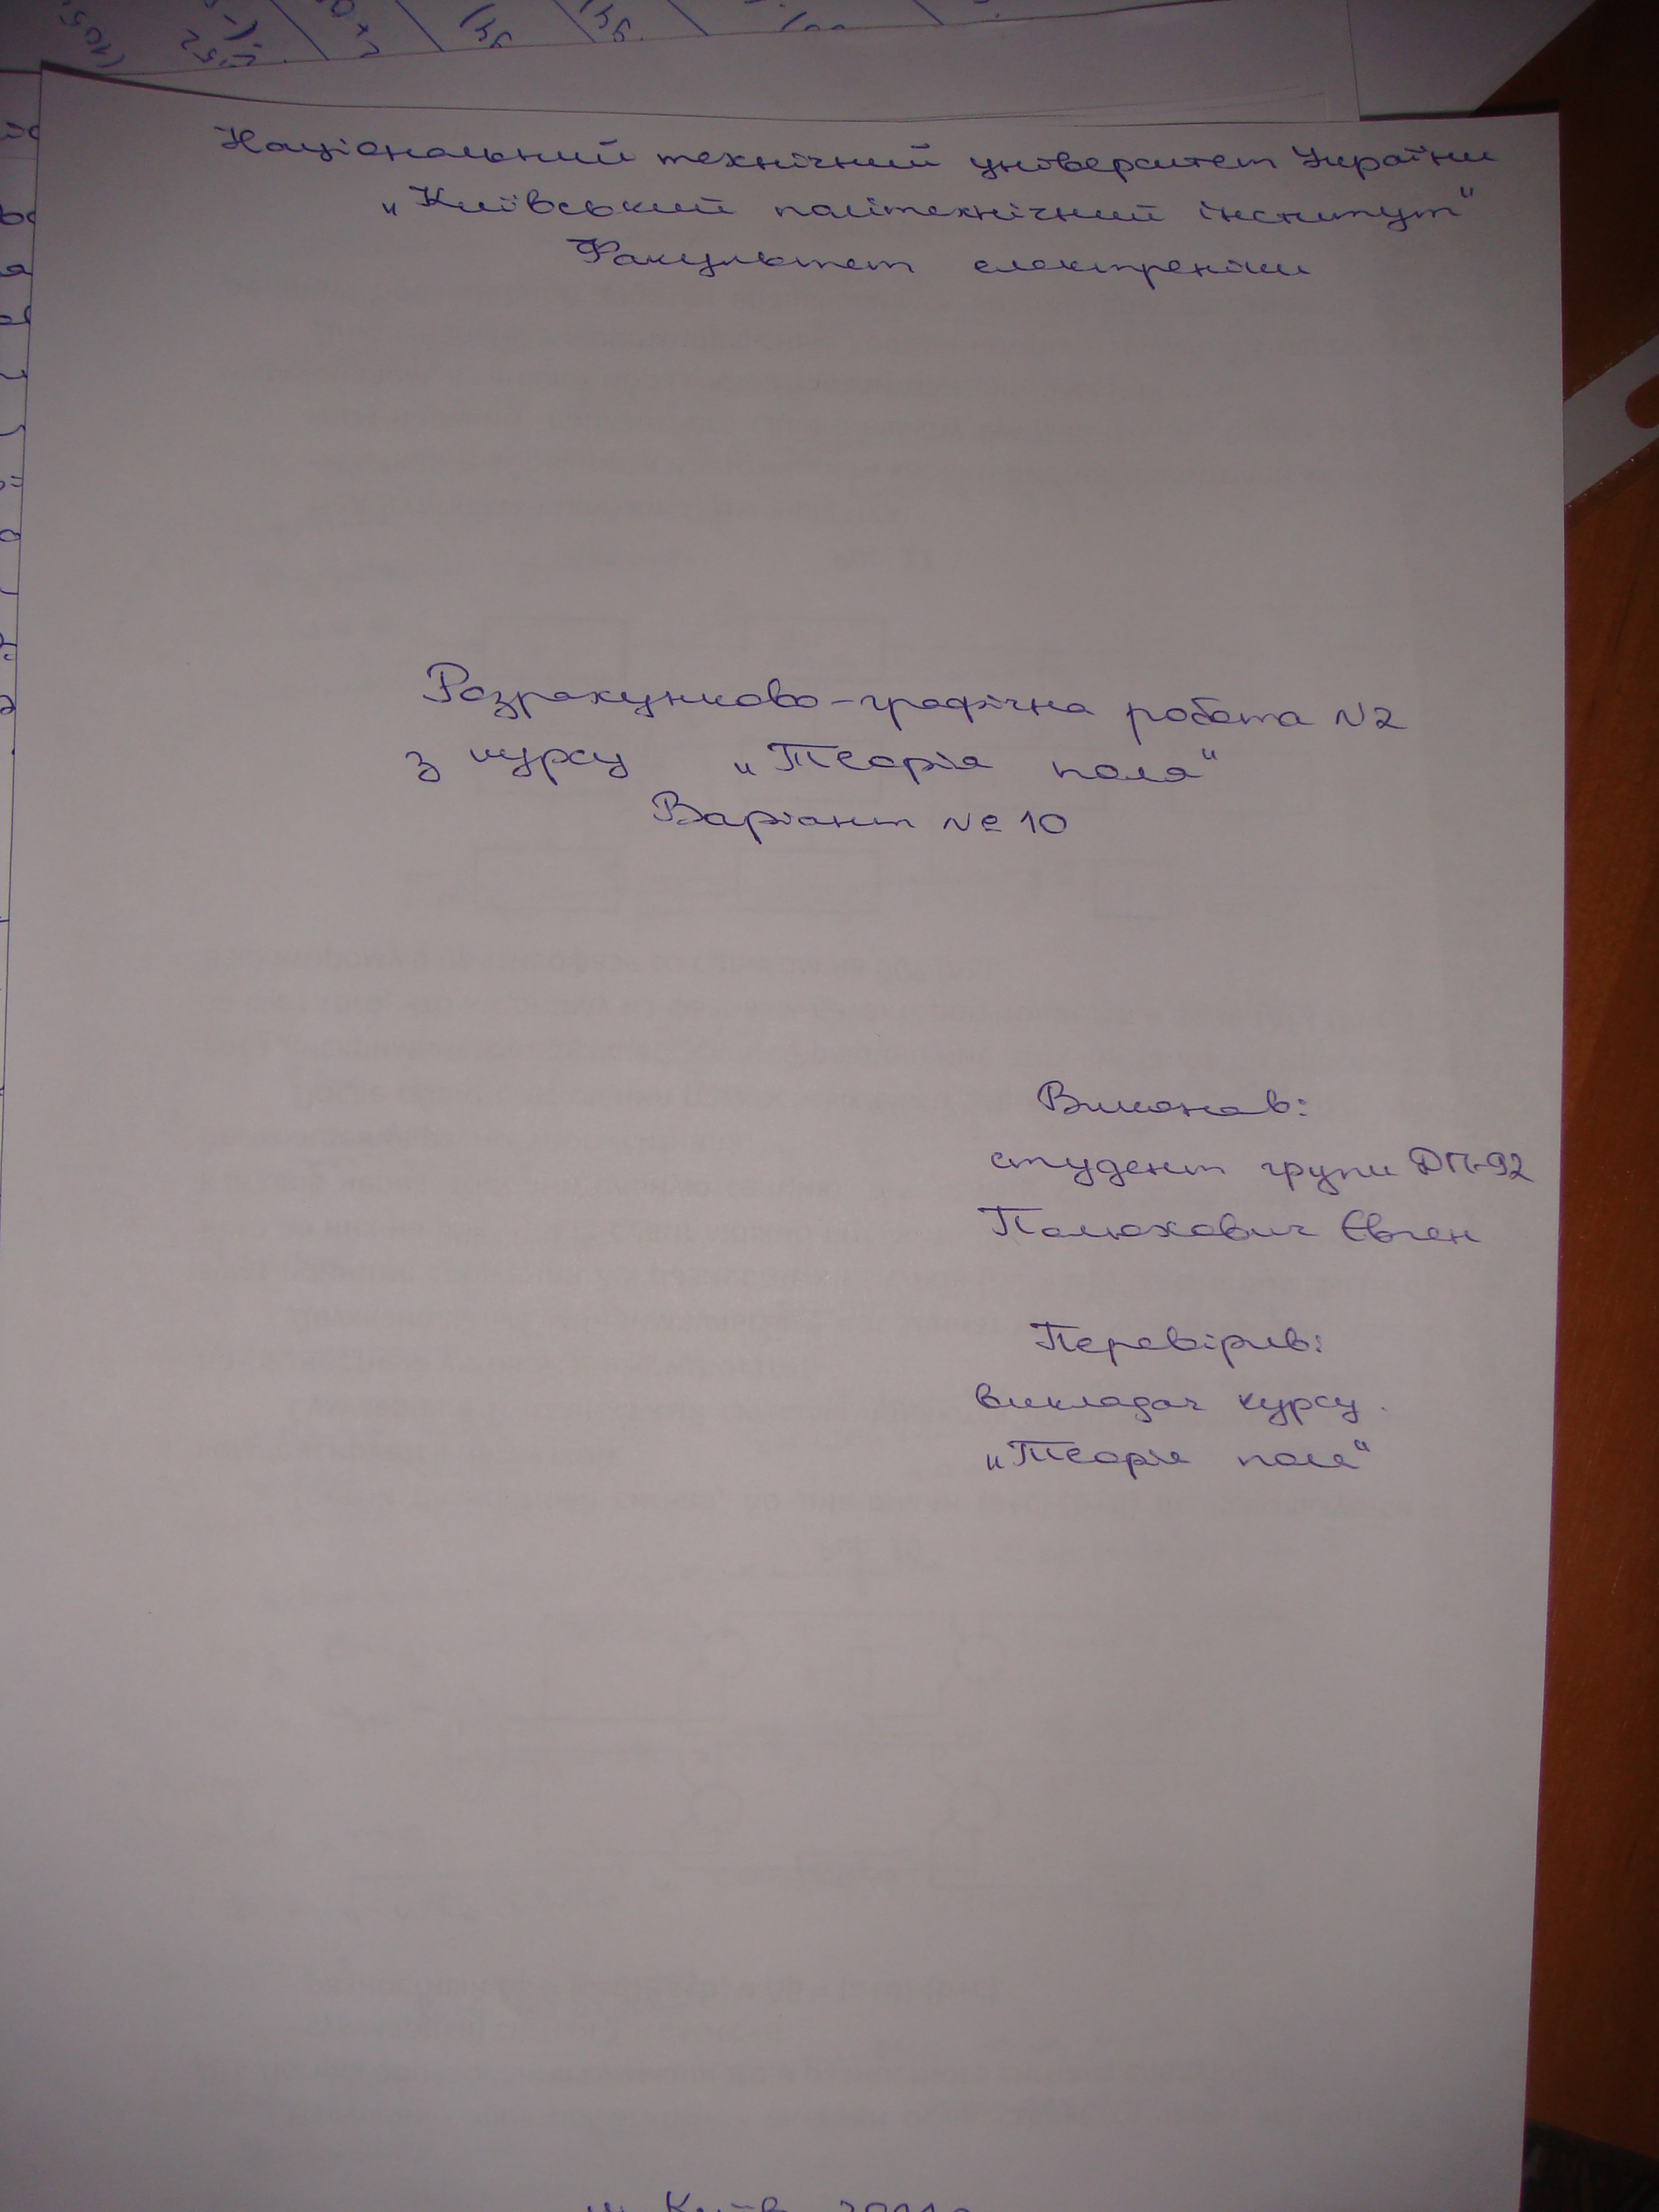 Національний технічний університет України
„Київський політехнічний інститут“
Факультет електроніки
Розрахунково-графічна робота №2
з курсу „Теорія поля“
Варіант № 10
Виконав:
студент групи ДП-92
Полюхович Євген
Перевірив:
викладач курсу
„Теорія поля“
м. Київ 2011 р